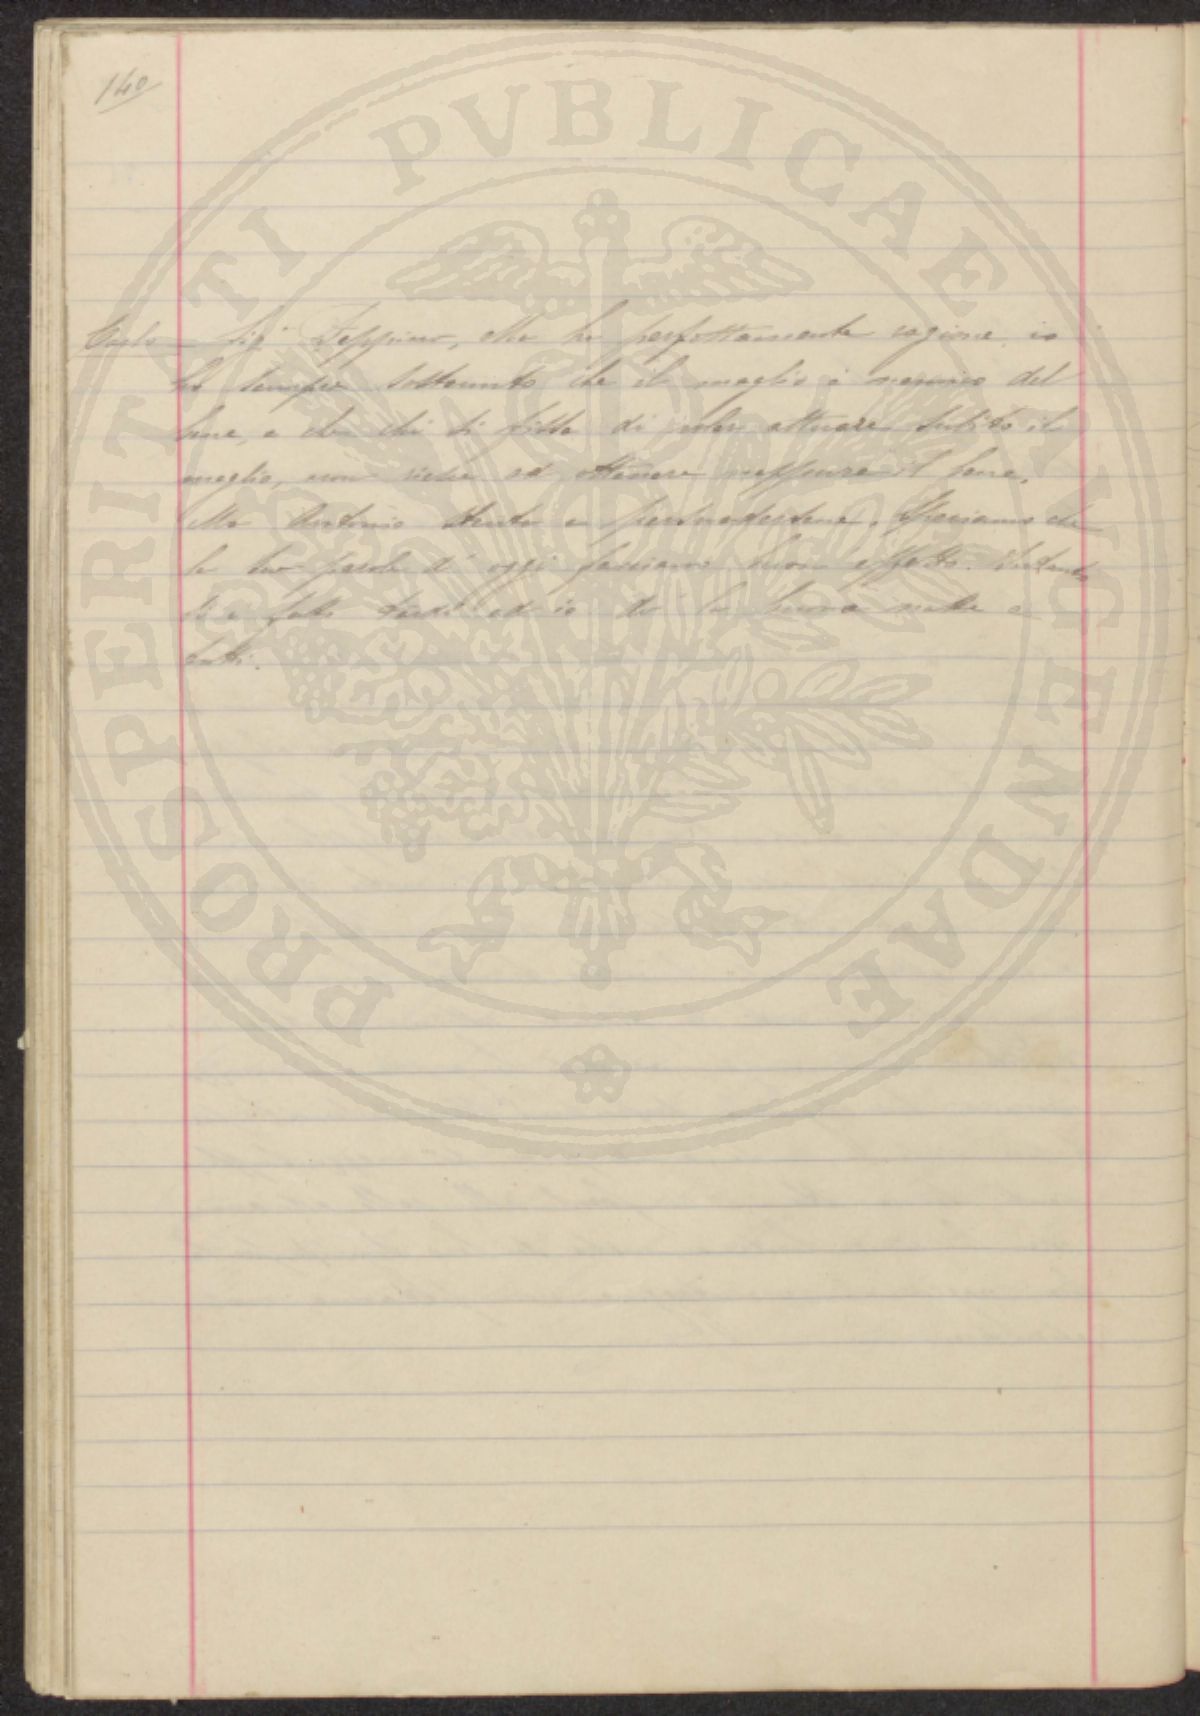 140
PROSPERITATI PVBLICAE AVGENDAE
Carlo – Sig Beppino, Ella ha perfettamente ragione, io
ho sempre sostenuto che il meglio è nemico del
bene, e che chi si fissa di voler attuare subito il
meglio, non riesce ad ottenere neppure il bene.
Ma Antonio stenta a persuadersene. Speriamo che
le sue parole d'oggi facciano buon effetto. Intanto
si è fatto tardi ed io do la buona notte a
tutti.